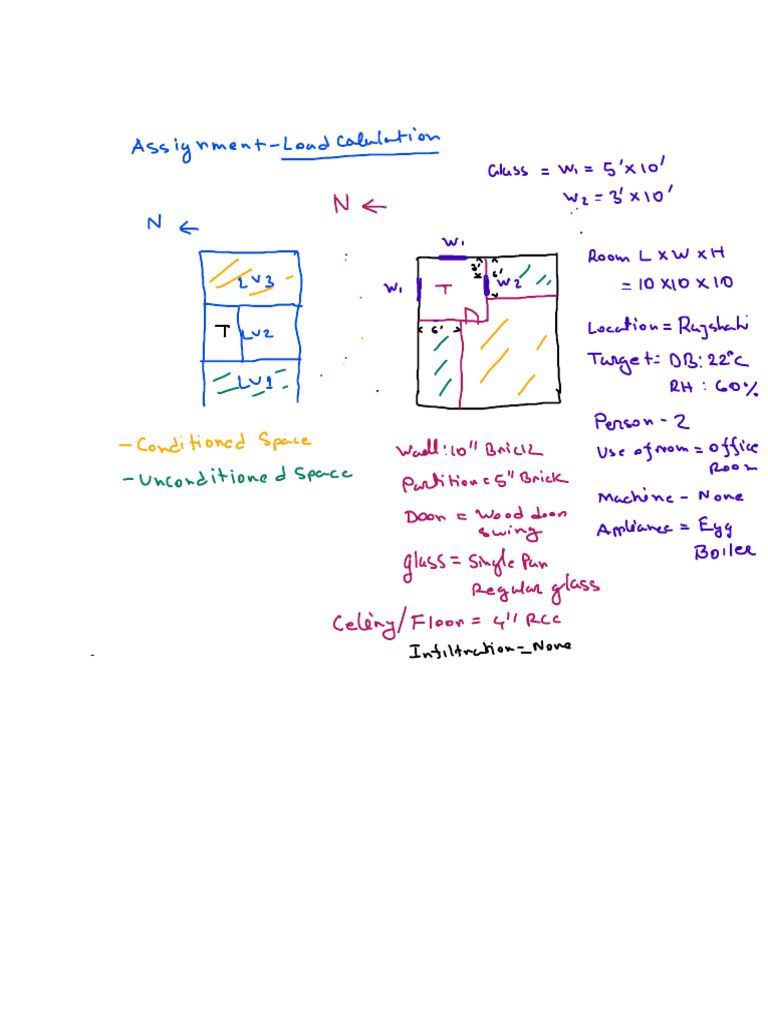 Assignment - Load Calculation
Glass = W1 = 5' x 10'
W2 = 3' x 10'
N ←
N ←
W1
LV3
3'
6'
W2
W1
T
Room L x W x H
= 10 x 10 x 10
T
LV2
6'
Location = Rajshahi
LV1
Target = DB: 22°C
RH : 60%
Person - 2
- Conditioned Space
- Unconditioned Space
Wall: 10" Brick
Partition = 5" Brick
Door = Wood door
swing
glass = Single Pan
Regular glass
Celêng/Floor = 4" RCC
Infiltration = None
Use of room = office
Room
Machine - None
Appliance = Egg
Boiler